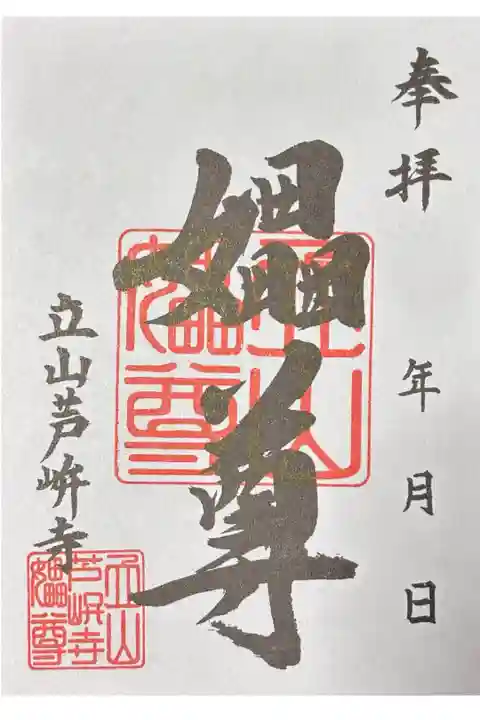 奉拝
年 月 日
尊
立山芦峅寺
立山
尊
立山
芦峅寺
尊